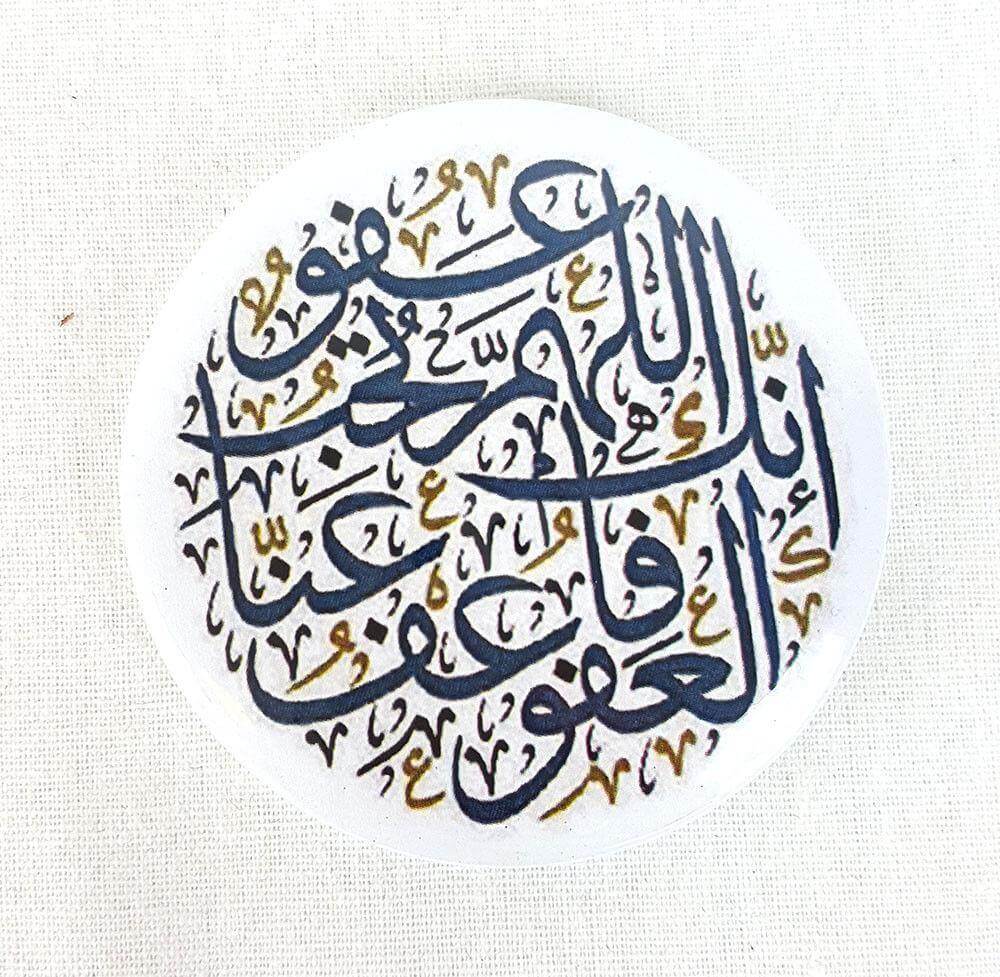 اللهم إنّك عفوٌ تُحب العفو فاعف عنّا